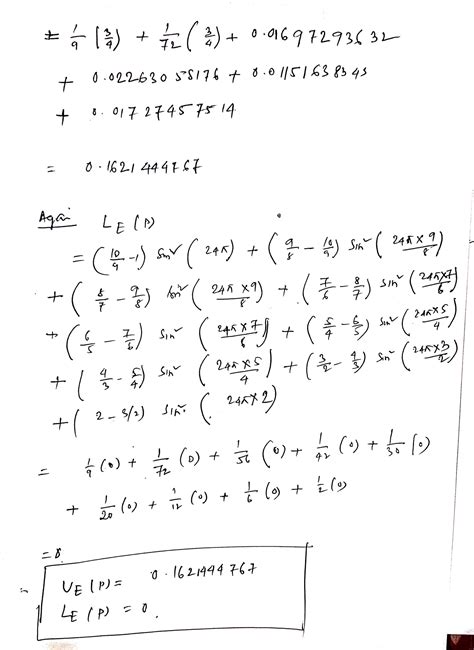 = 1/9 (3/4) + 1/72 (3/4) + 0.01697293632
+ 0.02263055176 + 0.01151638343
+ 0.01727457514
= 0.1621444767
Again L_E (P)
= (10/9 - 1) sin² (24π) + (9/8 - 10/9) sin² (24π×9/8)
+ (8/7 - 9/8) sin² (24π×9/8) + (7/6 - 8/7) sin² (24π×7/6)
+ (6/5 - 7/6) sin² (24π×7/6) + (5/4 - 6/5) sin² (24π×5/4)
+ (4/3 - 5/4) sin² (24π×5/4) + (3/2 - 4/3) sin² (24π×3/2)
+ (2 - 3/2) sin² (24π×2)
= 1/9 (0) + 1/72 (0) + 1/56 (0) + 1/42 (0) + 1/30 (0)
+ 1/20 (0) + 1/12 (0) + 1/6 (0) + 1/2 (0)
= 0.
∴ U_E (P) = 0.1621444767
L_E (P) = 0.